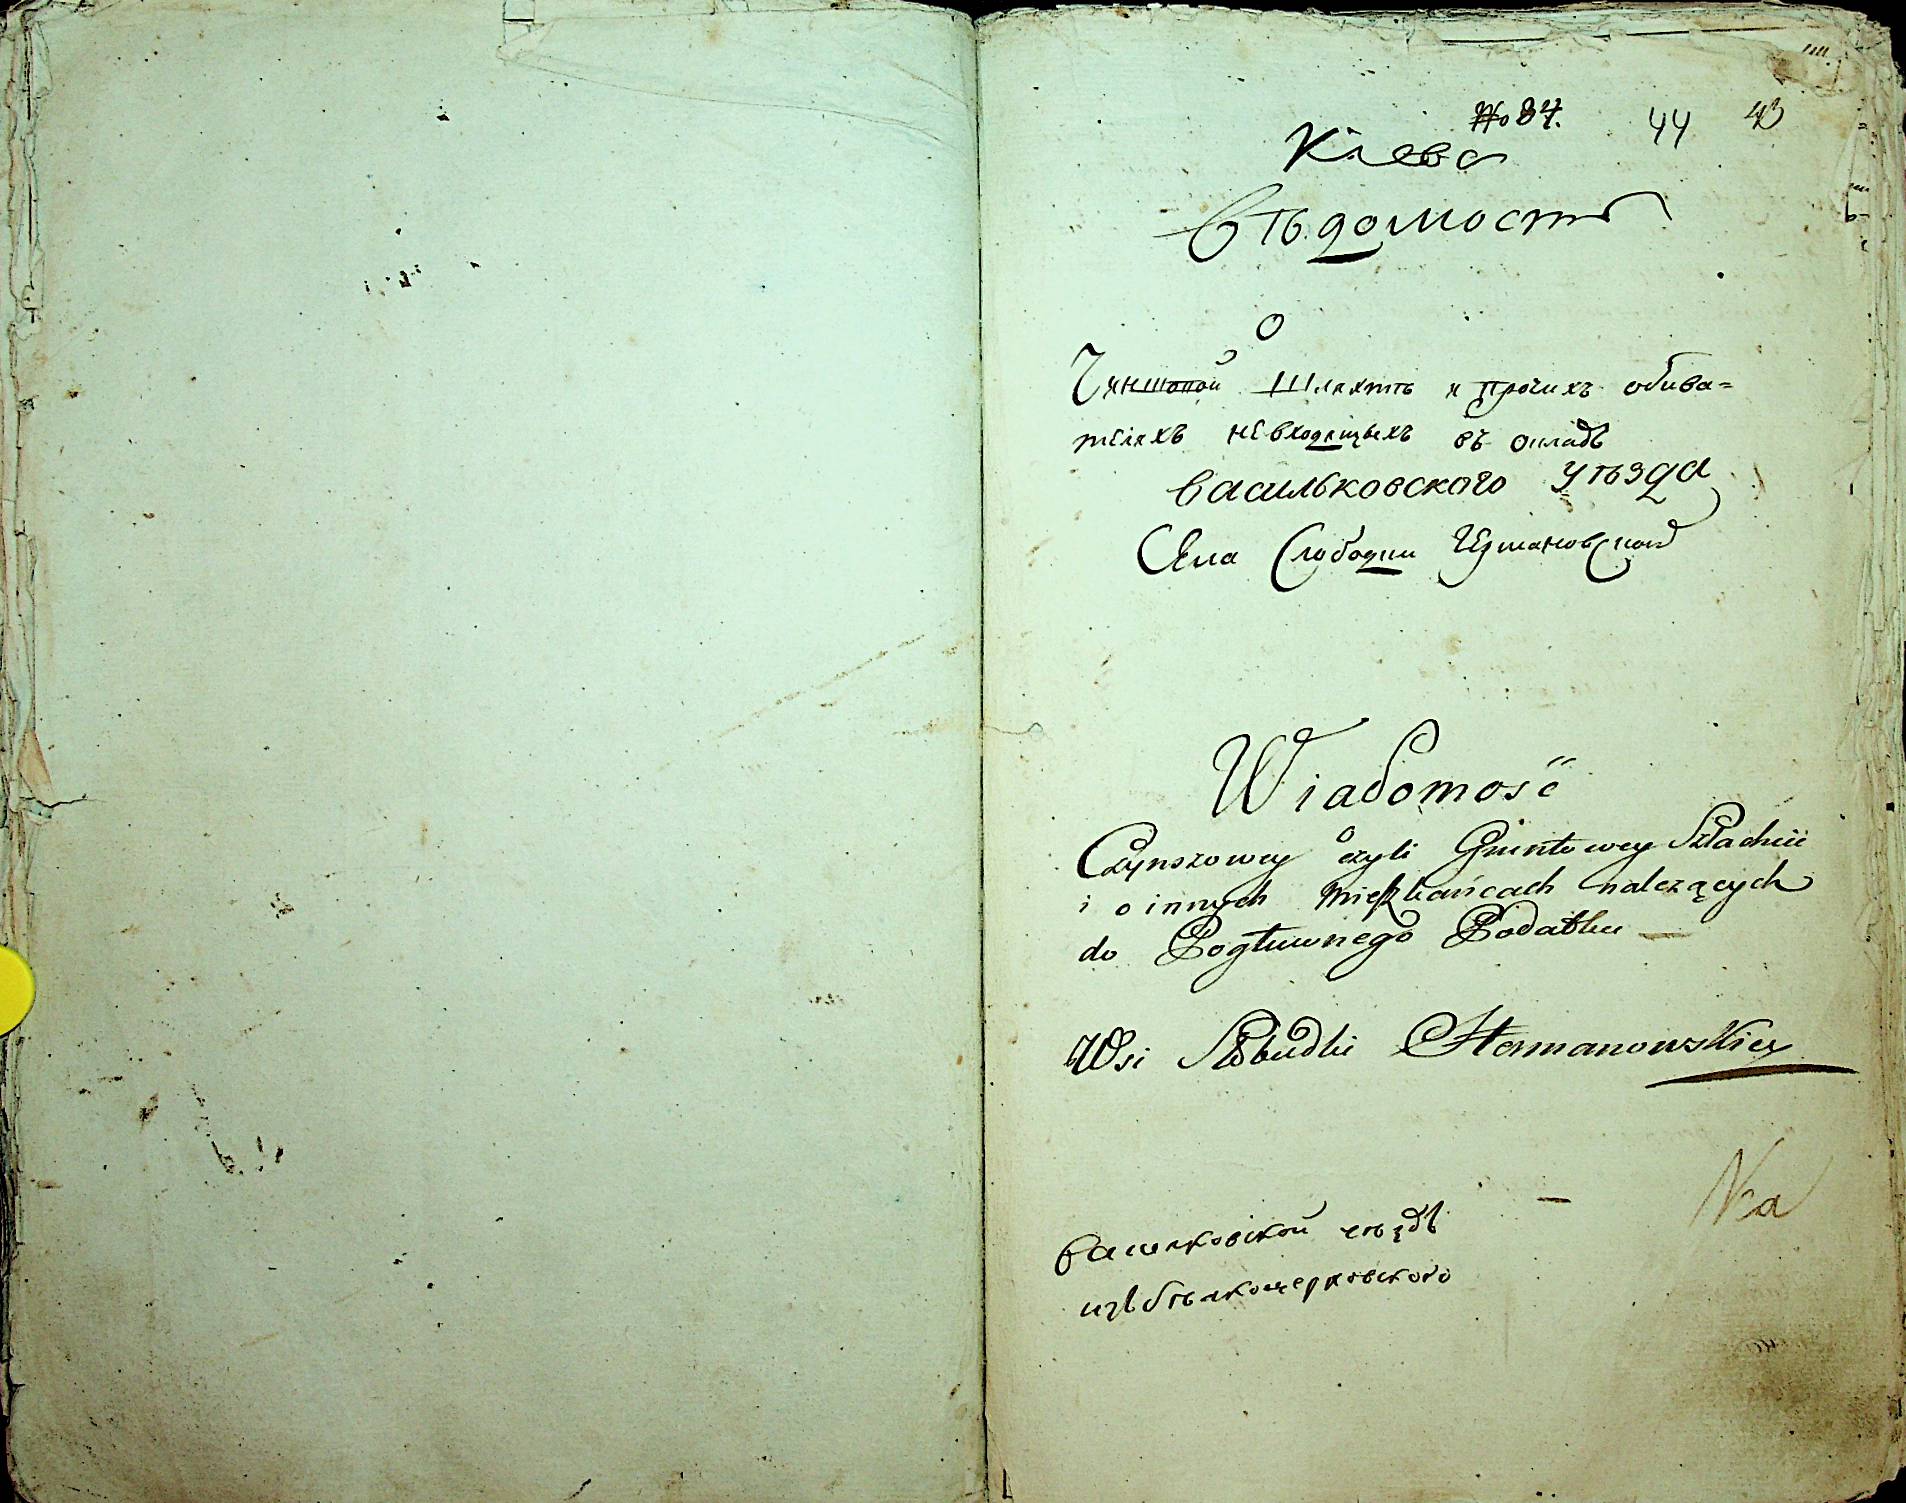 № 84. 44 43
Кіева
Вѣдомость
О
Чиншовой Шляхтѣ и прочихъ обива=
телехъ невходящыхъ въ окладъ
васильковского уѣзда
Села Слободки Германовской
Wiadomość
o
Czynszowey czyli Gruntowey Szlachcie
i o innych Mieszkańcach należących
do Pogłuwnego Podatku —
Wsi Słobudki Hermanowskiey
василковской уѣздъ
изъ бѣлоцерковского